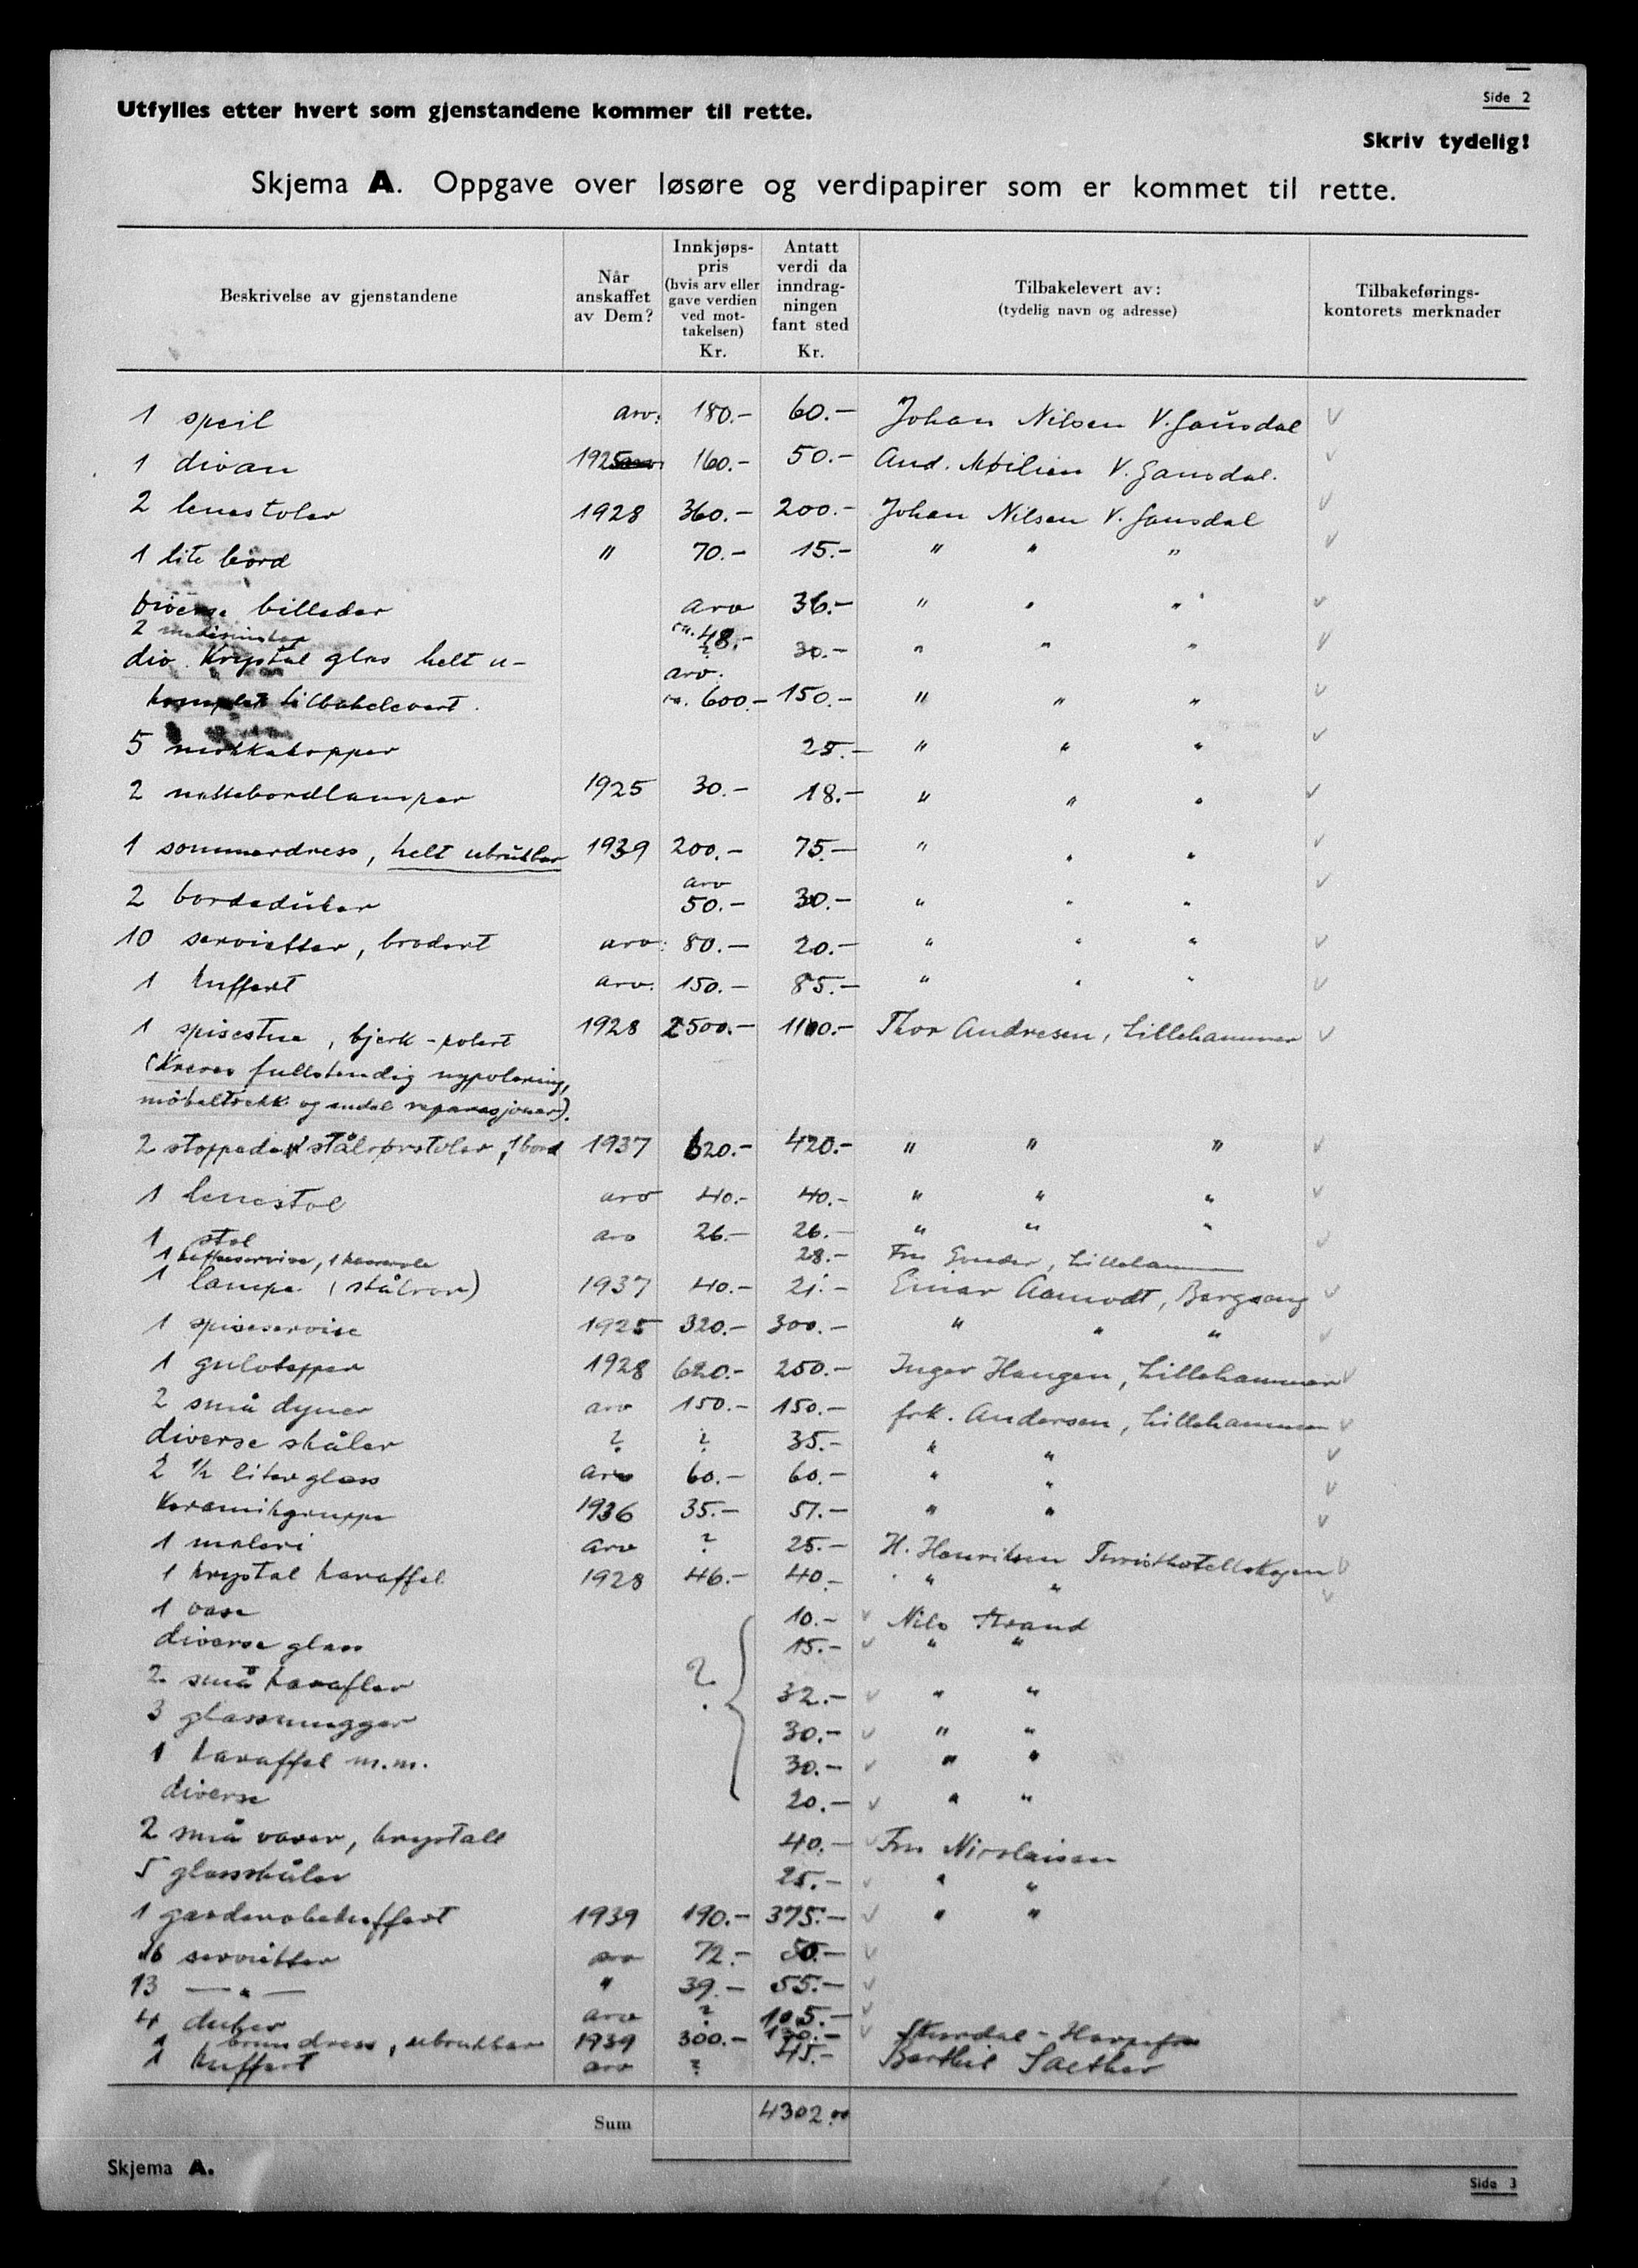 Side 2
Utfylles etter hvert som gjenstandene kommer til rette.
Skriv tydelig!
Skjema A. Oppgave over løsøre og verdipapirer som er kommet til rette.
Beskrivelse av gjenstandene | Når anskaffet av Dem? | Innkjøps-pris (hvis arv eller gave verdien ved mot-takelsen) Kr. | Antatt verdi da inndrag-ningen fant sted Kr. | Tilbakelevert av: (tydelig navn og adresse) | Tilbakeførings-kontorets merknader
1 speil arv. 180.- 60.- Johan Nilsen V. Gausdal ✓
1 divan 1925 160.- 50.- And. Møilien V. Gausdal. ✓
2 lenestoler 1928 360.- 200.- Johan Nilsen V. Gausdal ✓
1 lite bord " 70.- 15.- " " " ✓
Diverse billeder arv 36.- " " " ✓
2 ca. 48.- 30.- " " " ✓
div. Krystal glas helt u- arv.
komplet tilbakelevert. ca. 600.- 150.- " " " ✓
5 mokkakopper 25.- " " " ✓
2 nattbordlamper 1925 30.- 18.- " " " ✓
1 sommerdress, helt ubrukbar 1939 200.- 75.- " " " ✓
2 bordduker arv 50.- 30.- " " " ✓
10 servietter, brodert arv. 80.- 20.- " " " ✓
1 kuffert arv. 150.- 85.- " " " ✓
1 spisestue, bjerk-polert 1928 2500.- 1100.- Thor Andresen, Lillehammer ✓
(Kreves fullstendig nypolering,
møbeltrekk og endel reparasjoner).
2 stoppede stålrørstoler, 1 bord 1937 620.- 420.- " " " ✓
1 lenestol arv 40.- 40.- " " " ✓
1 stol arv 26.- 26.- " " " ✓
1 kaffeservise, 1 28.- Fru Lillehammer
1 lampe (stålrør) 1937 40.- 21.- Einar Aamodt, Bergseng ✓
1 spiseservise 1925 320.- 300.- " " " ✓
1 gulvtepper 1928 620.- 250.- Inger Haugen, Lillehammer ✓
2 små dyner arv 150.- 150.- frk. Andersen, Lillehammer ✓
diverse skåler ? ? 35.- " " ✓
2 1/2 liter glass arv 60.- 60.- " " ✓
Keramikgruppe 1936 35.- 51.- " " ✓
1 maleri arv ? 25.- H. Henriksen Turisthotellskogen ✓
1 krystal karaffel 1928 46.- 40.- " " ✓
1 vase 10.- ✓ Nils Strand
diverse glass 15.- ✓ " "
2 små karafler ? 32.- ✓ " "
3 glassmugger 30.- ✓ " "
1 karaffel m.m. 30.- ✓ " "
diverse 20.- ✓ " "
2 små vaser, krystall 40.- ✓ Fru Nicolaisen
5 glasskåler 25.- ✓ " "
1 garderobekuffert 1939 190.- 375.- ✓ " "
16 servietter arv 72.- 50.- ✓
13 — " — " 39.- 55.- ✓
4 duker arv ? 105.- ✓
1 brun dress, ubrukbar 1939 300.- 130.- ✓
1 kuffert arv ? 45.- Berthil Saether
Sum 4302.00
Skjema A.
Side 3